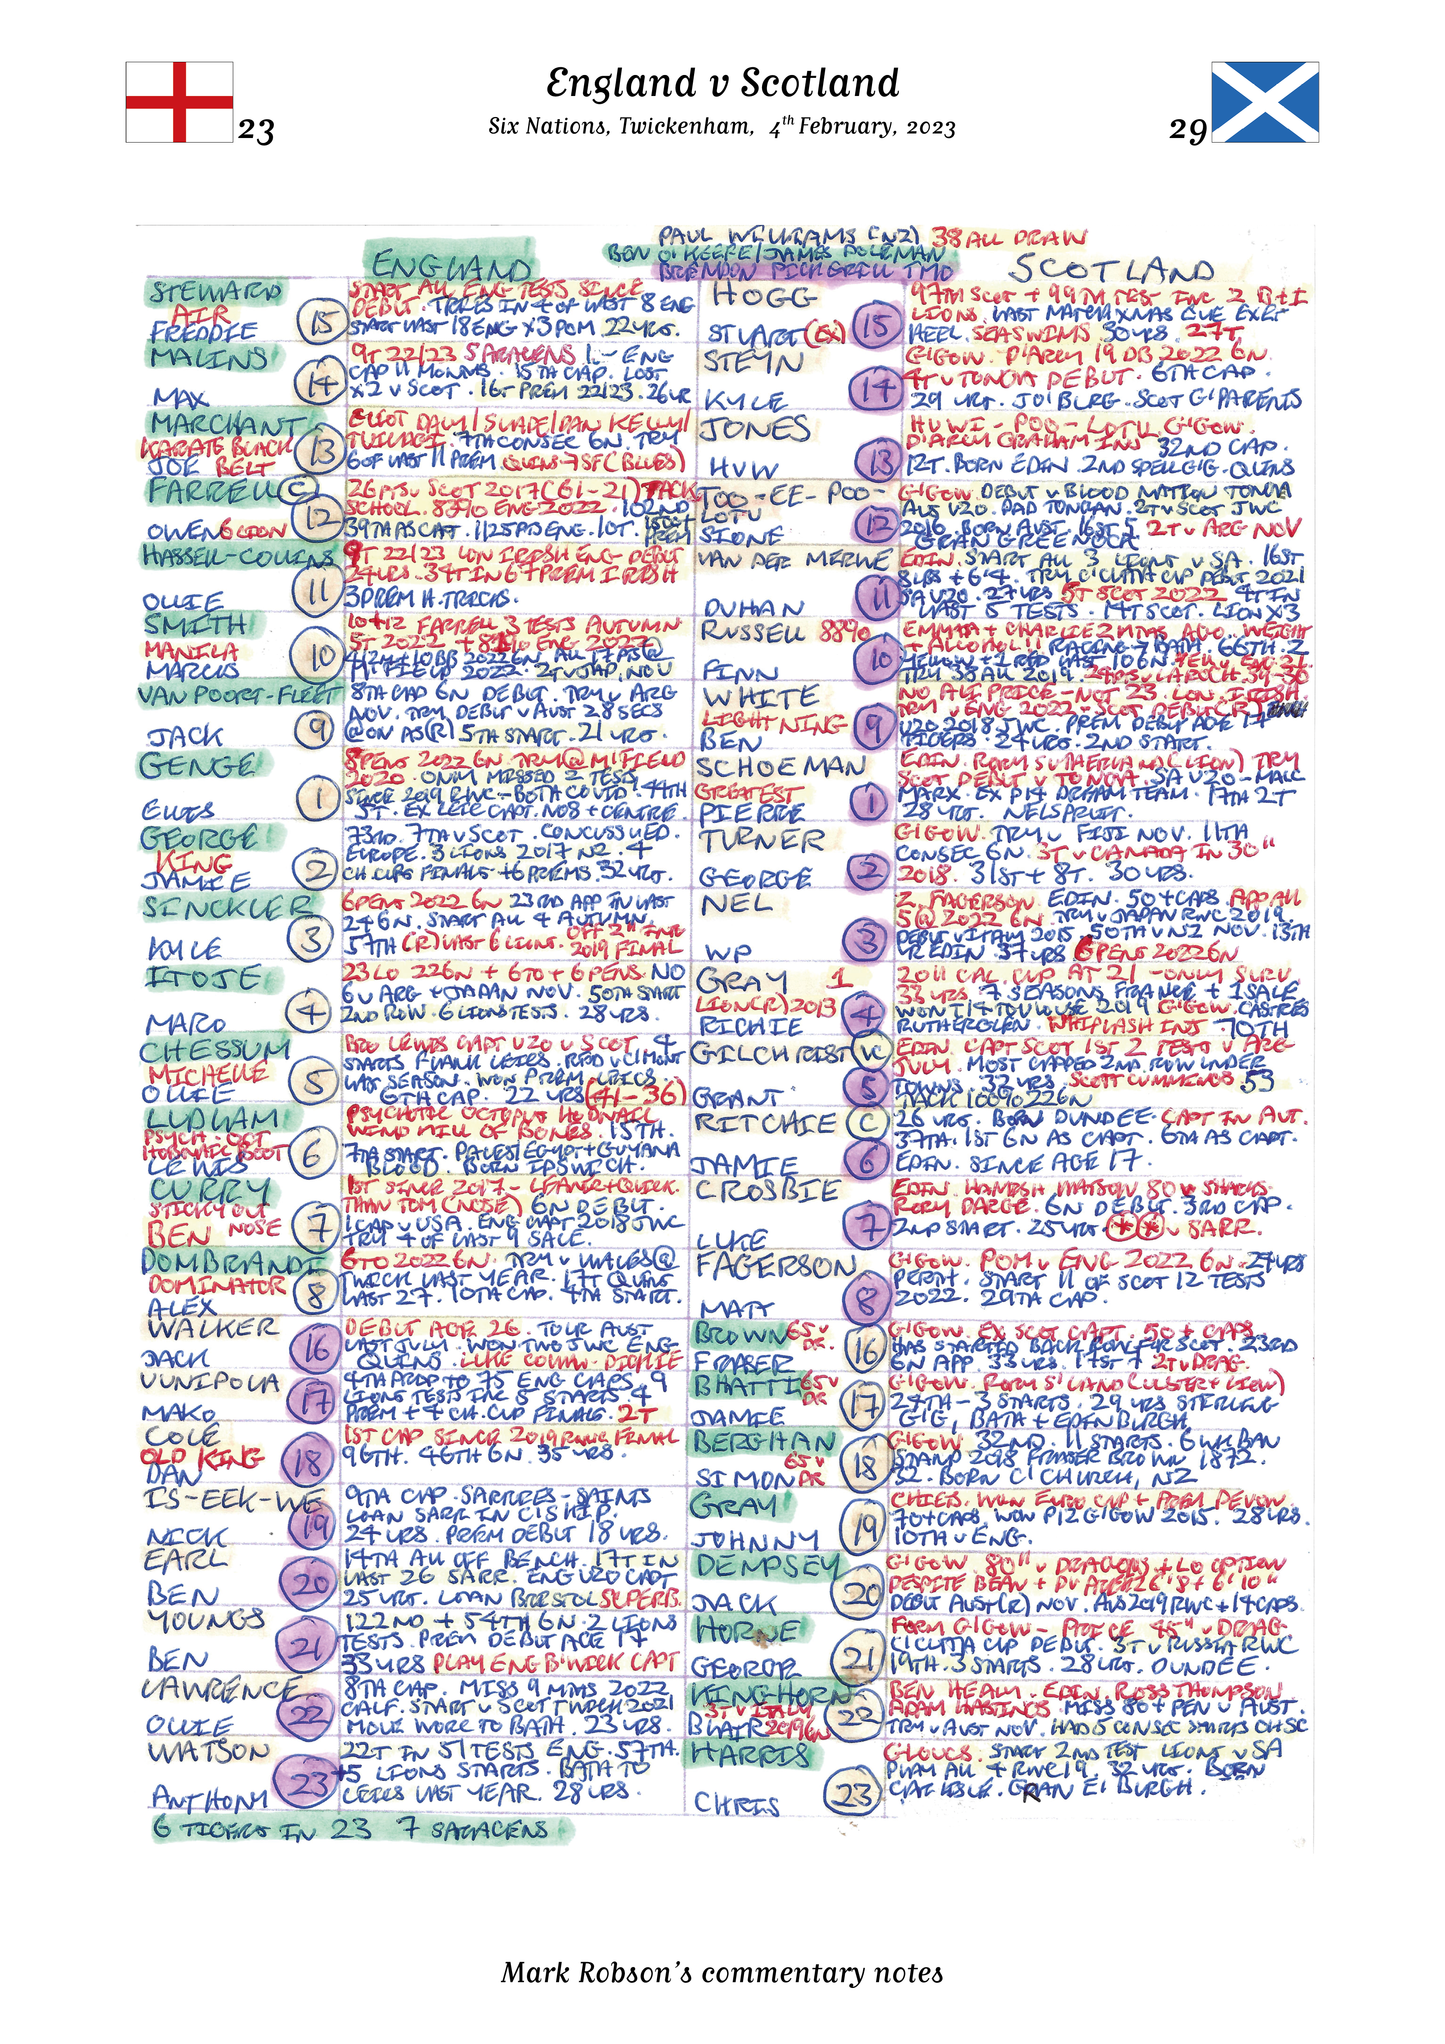 England v Scotland
23
29
Six Nations, Twickenham, 4th February, 2023
PAUL WILLIAMS (NZ) 38 ALL DRAW
BEN O'KEEFE/JAMES DOLEMAN
BRENDON PICKERILL TMO
ENGLAND
SCOTLAND
STEWARD
AIR
FREDDIE
15
START ALL ENG TESTS SINCE
DEBUT. TRIES IN 4 OF LAST 8 ENG
START LAST 18 ENG X3 POM 22 YRS.
MALINS
MAX
14
9T 22/23 SARACENS 1st ENG
CAP 11 MONTHS. 15TH CAP. LOST
X2 V SCOT. 16T PREM 22/23. 26 YR
MARCHANT
KARATE BLACK
JOE BELT
13
ELLIOT DALY/SLADE/DAN KELLY/
TUILAGI. 7TH CONSEC 6N. TRY
6 OF LAST 11 PREM QUINS → SF (BLUES)
FARRELL C
OWEN 6 LION
12
26 PTS V SCOT 2017 (61-21) TACK
SCHOOL. 83% ENG 2022. 102ND
39TH AS CAPT. 1125 PTS ENG. 10T.
HASSELL-COLLINS
OLLIE
11
9T 22/23 LON IRISH ENG DEBUT
24 YRS. 34T IN 67 PREM IRISH
3 PREM H. TRICKS.
SMITH
MANILA
MARCUS
10
10+12 FARRELL 3 TESTS AUTUMN
5T 2022
VAN POORT-FLEET
JACK
9
8TH CAP 6N DEBUT. TRY V ARG
NOV. TRY DEBUT V AUST 28 SECS
@ON AS (R) 5TH START. 21 YRS.
GENGE
ELLIS
1
8 PENS 2022 6N. TRY @ M'FIELD
2020. ONLY MISSED 2 TESTS
SINCE 2019 RWC - BOTH COVID. 44TH
5T. EX LEIC CAPT. NO8 + CENTRE.
GEORGE
KING
JAMIE
2
73RD. 7TH V SCOT. CONCUSSED.
EUROPE. 3 LIONS 2017 NZ. 4
CH. CUPS FINALS + 6 PREMS. 32 YRS.
SINCKLER
KYLE
3
6 PENS 2022 6N 23RD APP IN LAST
24 6N. START ALL 4 AUTUMN.
57TH (R) LAST 6 LIONS. OFF 2" INJ
2019 FINAL
ITOJE
MARO
4
23 LO 22 6N + 6TO + 6 PENS. NO
6 V ARG + JAPAN NOV. 50TH START
2ND ROW. 6 LIONS TESTS. 28 YRS.
CHESSUM
MICHELLE
OLLIE
5
BRO LEWIS CAPT U20 V SCOT. 4
STARTS FLANK LEICS. RED V CLMONT
LAST SEASON. WON PREM LEICS.
6TH CAP. 22 YRS (41-36)
LUDLAM
PSYCH-OCT
HOBNAIL BOOT
LEWIS
6
PSYCHOTIC OCTOPUS HOBNAIL
WIND MILL OF BONES. 15TH.
7TH START. PALES/EGYPT + GUYANA
BLOOD. BORN IPSWICH.
CURRY
STICKY OUT
BEN NOSE
7
1ST SINCE 2017 - LEANER + QUICK.
THAN TOM (NOSE) 6N DEBUT.
1 CAP V USA. ENG CAPT 2018 JWC
TRY 4 OF LAST 9 SALE.
DOMBRANDT
DOMINATOR
ALEX
8
6TO 2022 6N. TRY V WALES @
TWICK LAST YEAR. 17T QUINS
LAST 27. 10TH CAP. 4TH START.
WALKER
JACK
16
DEBUT AGE 26. TOUR AUST
LAST JULY. WON TWO JWC ENG
QUINS. LUKE COWAN-DICKIE
VUNIPOLA
MAKO
17
4TH PROP TO 75 ENG CAPS. 9
LIONS TESTS INC 5 STARTS. 4
PREM + 4 CH. CUP FINALS. 2T
COLE
OLD KING
DAN
18
1ST CAP SINCE 2019 RWC FINAL
96TH. 46TH 6N. 35 YRS.
IS-EEK-WE
NICK
19
9TH CAP. SARRIES - SAINTS
LOAN SARR IN C'SHIP.
24 YRS. PREM DEBUT 18 YRS.
EARL
BEN
20
14TH ALL OFF BENCH. 17T IN
LAST 26 SARR. ENG U20 CAPT
25 YRS. LOAN BRISTOL SUPERB.
YOUNGS
BEN
21
122ND + 54TH 6N. 2 LIONS
TESTS. PREM DEBUT AGE 17
33 YRS PLAY ENG B'WICK CAPT
LAWRENCE
OLLIE
22
8TH CAP. MISS 9 MTHS 2022
CALF. START V SCOT TWICK 2021
MOVE WORC TO BATH. 23 YRS.
WATSON
ANTHONY
23
22T IN 51 TESTS ENG. 57TH.
+5 LIONS STARTS. BATH TO
LEICS LAST YEAR. 28 YRS.
6 TIGERS IN 23 7 SARACENS
HOGG
STUART (EX)
15
97TH SCOT + 99TH TEST INC 2 B+I
LIONS. LAST MATCH XMAS EVE EXET
HEEL. SEA SWIMS 30 YRS. 27T
STEYN
KYLE
14
G'GOW. D'ARCY 19 DB 2022 6N.
4T V TONGA DEBUT. 6TH CAP.
29 YRS. JO'BURG. SCOT G'PARENTS
JONES
HUW
13
HUWI-POO-LOTU G'GOW.
D'ARCY GRAHAM INJ 32ND CAP.
12T. BORN EDIN. 2ND SPELL G'G. QUINS
TOO-EE-POO-
LOTU
SIONE
12
G'GOW. DEBUT V BLOOD NATION TONGA
AUS U20. DAD TONGAN. 2T V SCOT JWC
2016. BORN AUST. 16ST 5 2T V ARG NOV
GRAN GREENOCK
VAN DER MERWE
DUHAN
11
EDIN. START ALL 3 LIONS V SA. 16ST
8LBS + 6'4. TRY C'CUTTA CUP DEBUT 2021
SA U20. 27 YRS 5T SCOT 2022 4T IN
LAST 5 TESTS. 14T SCOT. LION X3
RUSSELL 88%
FINN
10
EMMA + CHARLIE 2 MTHS AGO. WEIGHT
+ ALCOHOL 11 RACING → BATH. 66TH. 2
YELLOW + 1 RED LAST 10 6N.
TRY 38 ALL 2019.
WHITE
LIGHTNING
BEN
9
NO ALI PRICE - NOT 23. LON. IRISH.
TRY V ENG 2022 - SCOT DEBUT (R)
U20 2018 JWC. PREM DEBUT AGE 17
TIGERS. 24 YRS. 2ND START.
SCHOEMAN
GREATEST
PIERRE
1
EDIN. RORY SUTHERLAND (LION) TRY
SCOT DEBUT V TONGA. SA U20 - MALC
MARX. EX P14 DREAM TEAM. 17TH 2T
28 YRS. NELSPRUIT.
TURNER
GEORGE
2
G'GOW. TRY V FIJI NOV. 11TH
CONSEC. 6N. 3T V CANADA IN 30"
2018. 31ST + 8T. 30 YRS.
NEL
WP
3
Z. FAGERSON. EDIN. 50 + CAPS. APP ALL
5 @ 2022 6N. TRY V JAPAN RWC 2019.
DEBUT V ITALY 2015. 50TH V NZ NOV. 13TH
YR EDIN. 37 YRS 6 PENS 2022 6N
GRAY 1
LION (R) 2013
RICHIE
4
2011 CAL. CUP AT 21 - ONLY SURV.
33 YRS. 7 SEASONS FRANCE + 1 SALE
WON T14 TOULOUSE 2019 G'GOW. CASTRES
RUTHERGLEN. WHIPLASH INJ 70TH
GILCHRIST VC
GRANT
5
EDIN. CAPT SCOT 1ST 2 TESTS V ARG
JULY. MOST CAPPED 2ND ROW UNDER
TOWNS. 32 YRS. SCOTT CUMMINGS 53
TACK 100% 22 6N
RITCHIE C
JAMIE
6
26 YRS. BORN DUNDEE. CAPT IN AUT.
37TH. 1ST 6N AS CAPT. 6TH AS CAPT.
EDIN. SINCE AGE 17.
CROSBIE
LUKE
7
EDIN. HAMISH WATSON 80 V SHARKS
RORY DARGE. 6N DEBUT. 3RD CAP.
2ND START. 25 YRS. ** V SARR.
FAGERSON
MATT
8
G'GOW. POM V ENG 2022 6N. 24 YRS
PERTH. START 11 OF SCOT 12 TESTS
2022. 29TH CAP.
BROWN 65 V
DR.
FRASER
16
G'GOW. EX SCOT CAPT. 50 + CAPS.
HAS STARTED BACK ROW FOR SCOT. 23RD
6N APP. 33 YRS. 17ST 7 2T V DRAG.
BHATTI 65 V
DR
JAMIE
17
G'GOW. RORY S'LAND (ULSTER + LION)
27TH - 3 STARTS. 29 YRS STIRLING
G'G, BATH + EDINBURGH
BERGHAN
65 V
SIMON DR
18
G'GOW 32ND. 11 STARTS. 6 WK BAN
STAND 2018 FRASER BROWN 1872.
32. BORN C'CHURCH, NZ
GRAY
JOHNNY
19
CHIEFS. WON EURO CUP + PREM DEVON.
70 + CAPS. WON P12 G'GOW 2015. 28 YRS.
10TH V ENG.
DEMPSEY
JACK
20
G'GOW. 80" V DRAGONS + LO OPTION
DEBUT AUST (R) NOV. AUS 2019 RWC + 14 CAPS.
HORNE
GEORGE
21
FORM G'GOW - PRICE 45" V DRAG.
C'CUTTA CUP DEBUT. 3T V RUSSIA RWC
19TH. 3 STARTS. 28 YRS. DUNDEE.
KINGHORN
3T V ITALY
BLAIR 2019 6N
22
BEN HEALY. EDIN. ROSS THOMPSON
ADAM HASTINGS. MISS 80 + PEN V AUST.
TRY V AUST NOV. HAD 5 CONSEC STARTS
HARRIS
CHRIS
23
GLOUCS. START 2ND TEST LIONS V SA
PLAY ALL 4 RWC 19. 32 YRS. BORN
CARLISLE. GRAN E'BURGH.
Mark Robson's commentary notes